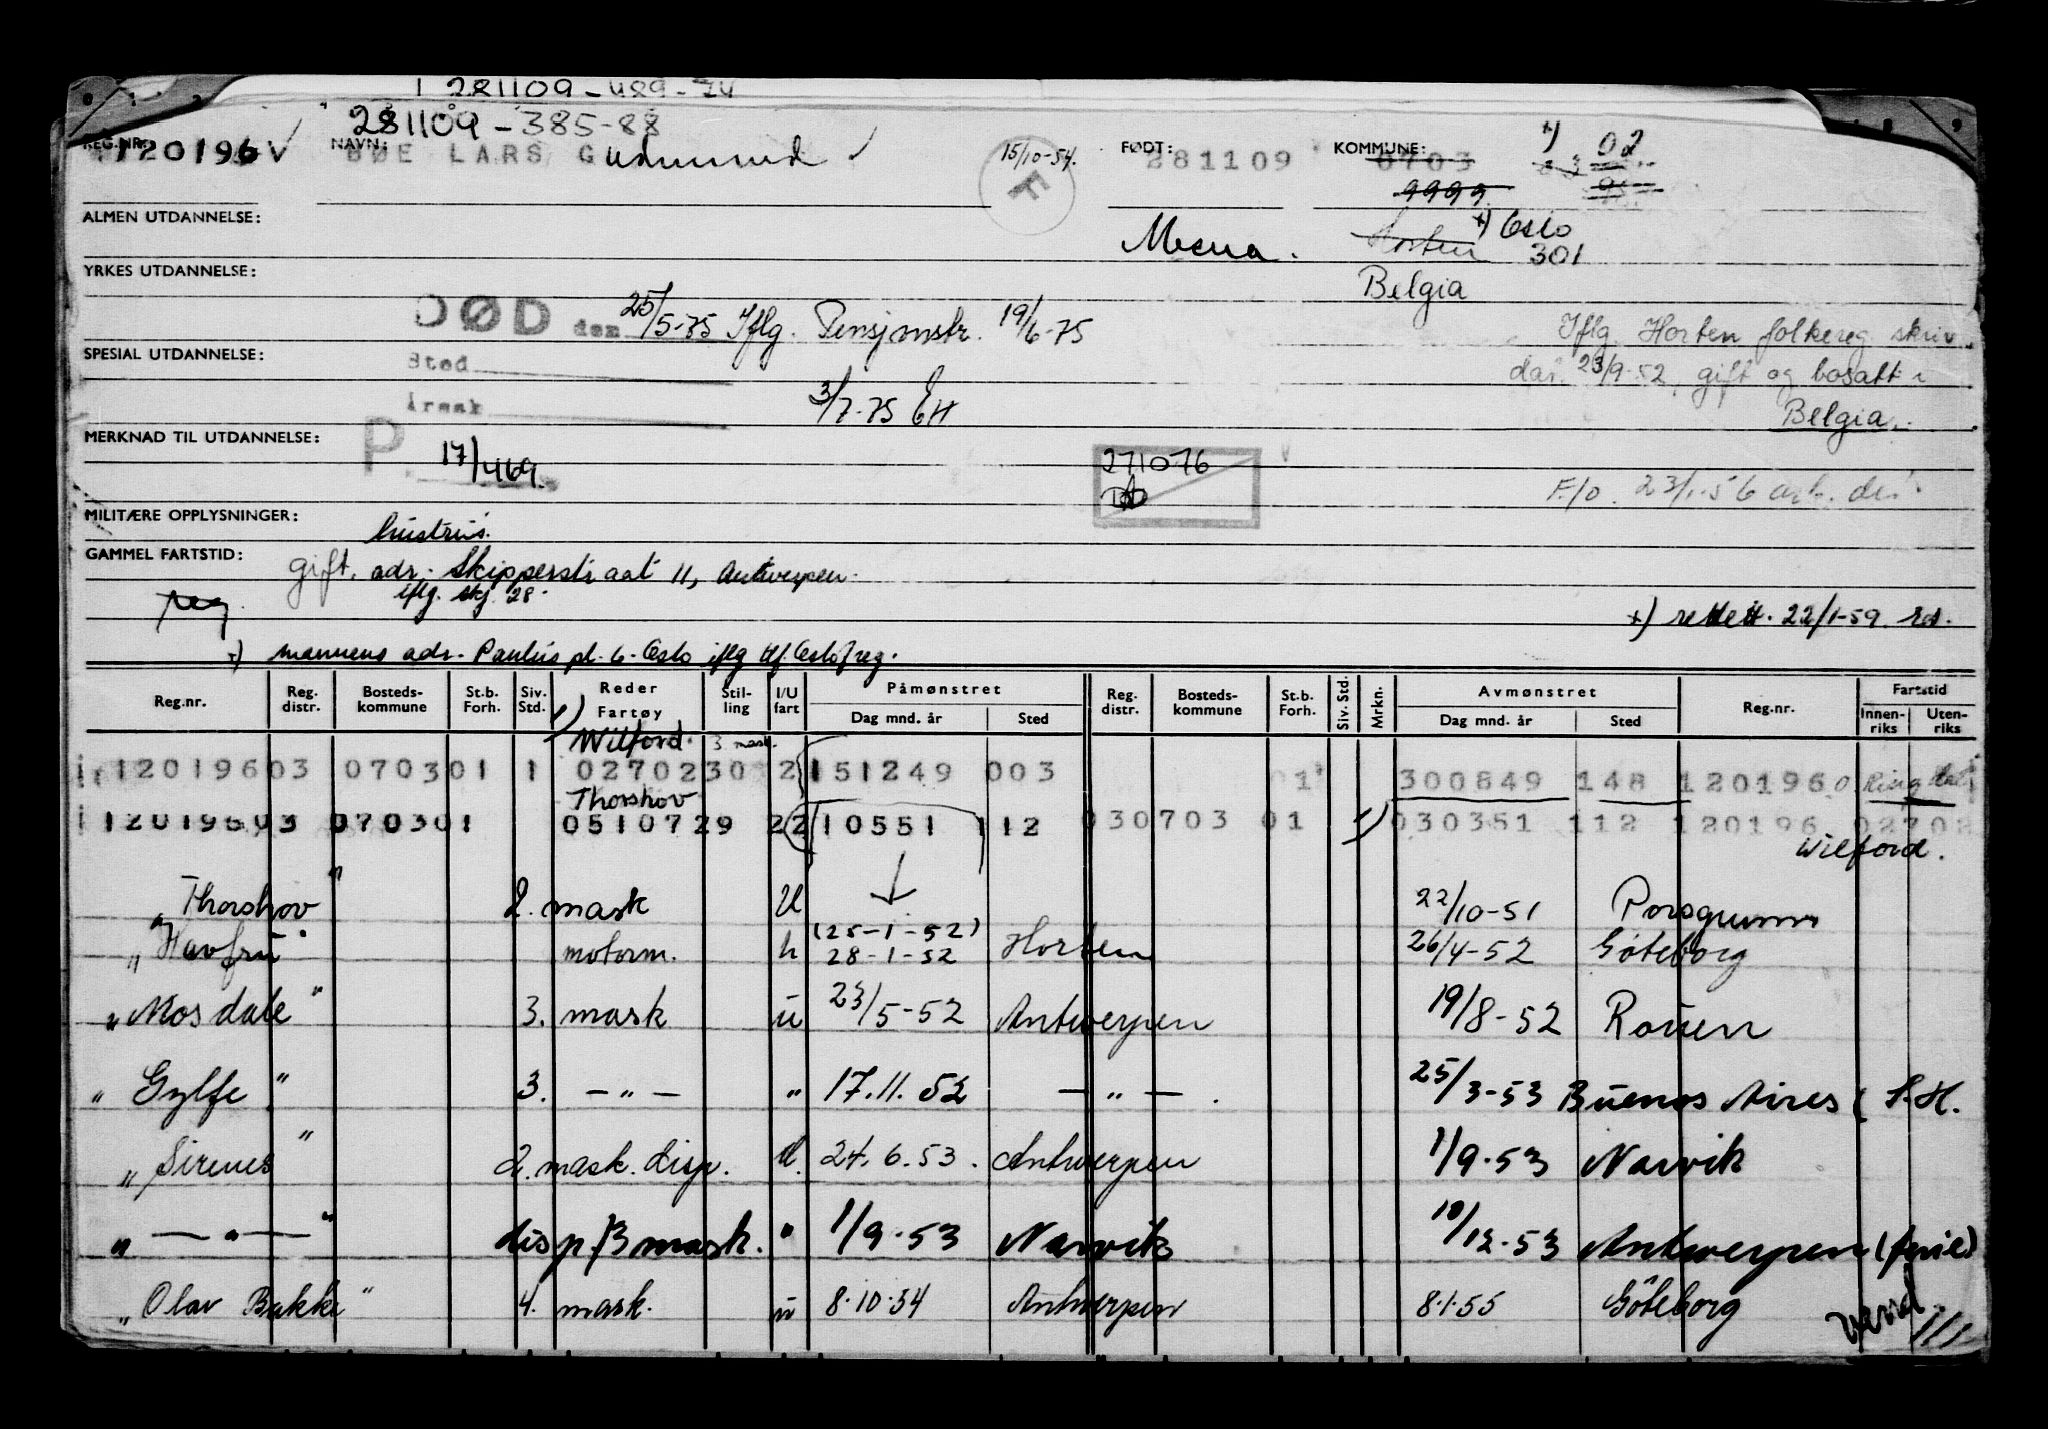 281109-489-74
281109-385-88
REG.NR: 120196 V NAVN: BØE LARS Gudmund 15/10-54. F FØDT: 281109 KOMMUNE: 0703 x) 02
9999
ALMEN UTDANNELSE: x) Oslo
Mesna. Horten 301
YRKES UTDANNELSE: Belgia
DØD den 25/5-75 Iflg. Pensjonstr. 19/6-75
Iflg. Horten folkereg skriv
SPESIAL UTDANNELSE: Sted
dat. 23/9-52, gift og bosatt i
Årsak 3/7-75 EH Belgia.
MERKNAD TIL UTDANNELSE: P. 17/469.
271076
F/O. 23/1-56
MILITÆRE OPPLYSNINGER: hustrus.
GAMMEL FARTSTID: gift. adr. Skipperstraat 11, Antwerpen.
reg. iflg. skj. 28
x) rettet. 22/1-59.
x) mannens adr. Paulus pl. 6. Oslo iflg tlf. Oslo f.reg.
Reg.nr. Reg. distr. Bosteds-kommune St.b. Forh. Siv. Std. Reder Fartøy Stil-ling I/U fart Påmønstret Dag mnd. år Sted Reg. distr. Bosteds-kommune St.b. Forh. Siv. Std. Mrkn. Avmønstret Dag mnd. år Sted Reg.nr. Fartstid Innen-riks Uten-riks
1) Wilford. 3 mask.
12019603 070301 1 02702302 2 151249 003 01 300849 148 120196
Thorshov
12019603 070301 0510729 22 10551 112 030703 01 1) 030351 112 120196 02702
Wilford.
"Thorshov" 2. mask U 22/10-51 Porsgrunn
(25-1-52)
"Havfru" motorm. u 28-1-52 Horten 26/4-52 Göteborg
"Mosdale" 3. mask u 23/5-52 Antwerpen 19/8-52 Rouen
"Gylfe" 3. — " — " 17.11.52 — " — . 25/3-53 Buenos Aires (S.H.
"Sirenes" 2. mask. disp. U. 24.6.53. Antwerpen 1/9-53 Narvik
" — " — " disp. 3 mask. " 1/9-53 Narvik 10/12-53 Antwerpen (ferie)
"Olav Bakke" 4. mask. u 8.10.54 Antwerpen 8.1.55 Göteborg
vend